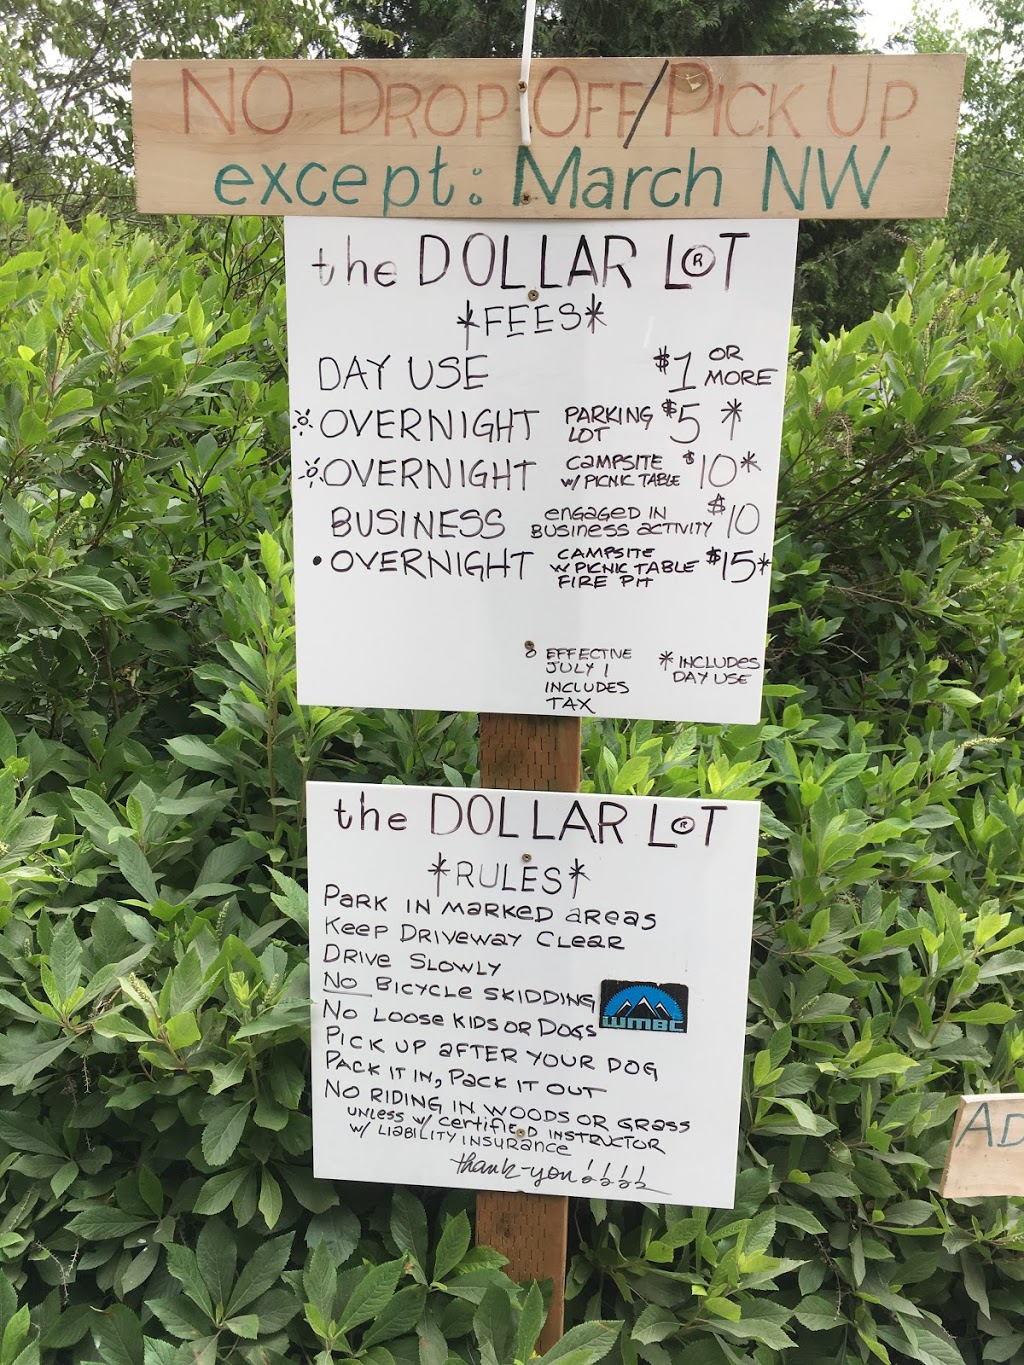 NO DROP OFF/PICK UP
except: March NW
the DOLLAR LOT
®
*FEES*
DAY USE $1 OR MORE
OVERNIGHT PARKING LOT $5 *
OVERNIGHT CAMPSITE W/ PICNIC TABLE $10*
BUSINESS ENGAGED IN BUSINESS ACTIVITY $10
• OVERNIGHT CAMPSITE W PICNIC TABLE FIRE PIT $15*
EFFECTIVE JULY 1 INCLUDES TAX
* INCLUDES DAY USE
the DOLLAR LOT
®
*RULES*
PARK IN MARKED AREAS
KEEP DRIVEWAY CLEAR
DRIVE SLOWLY
NO BICYCLE SKIDDING
NO LOOSE KIDS OR DOGS
WMBC
PICK UP AFTER YOUR DOG
PACK IT IN, PACK IT OUT
NO RIDING IN WOODS OR GRASS
UNLESS W/ CERTIFIED INSTRUCTOR
W/ LIABILITY INSURANCE
thank-you!!!!
AD